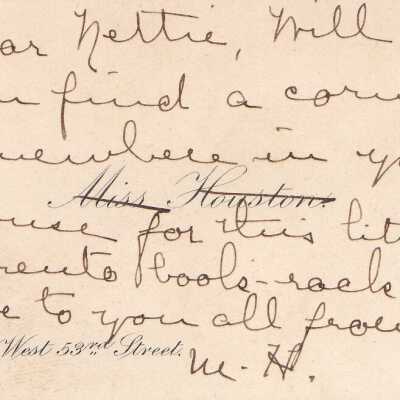 ar Nettie, Will
u find a corn
mewhere in y
Miss Houston.
ouse for this litt
rrento book-rack
e to you all from
West 53rd Street.
M. H.